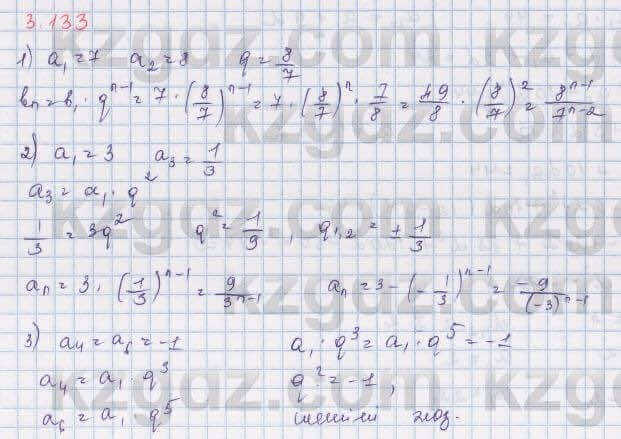 3.133
1) a₁=7 a₂=8 q=8/7
bₙ=b₁·qⁿ⁻¹=7·(8/7)ⁿ⁻¹=7·(8/7)ⁿ·7/8=49/8·(8/7)²=8ⁿ⁻¹/7ⁿ⁻²
2) a₁=3 a₃=1/3
a₃=a₁·q²
1/3=3q² q²=1/9, q₁,₂=±1/3
aₙ=3·(1/3)ⁿ⁻¹=9/3ⁿ⁻¹ aₙ=3-(-1/3)ⁿ⁻¹=-9/(-3)ⁿ⁻¹
3) a₄=a₆=-1 a₁·q³=a₁·q⁵=-1
a₄=a₁·q³ q²=-1,
a₆=a₁·q⁵ шешімі жоқ.
kzgdz.com